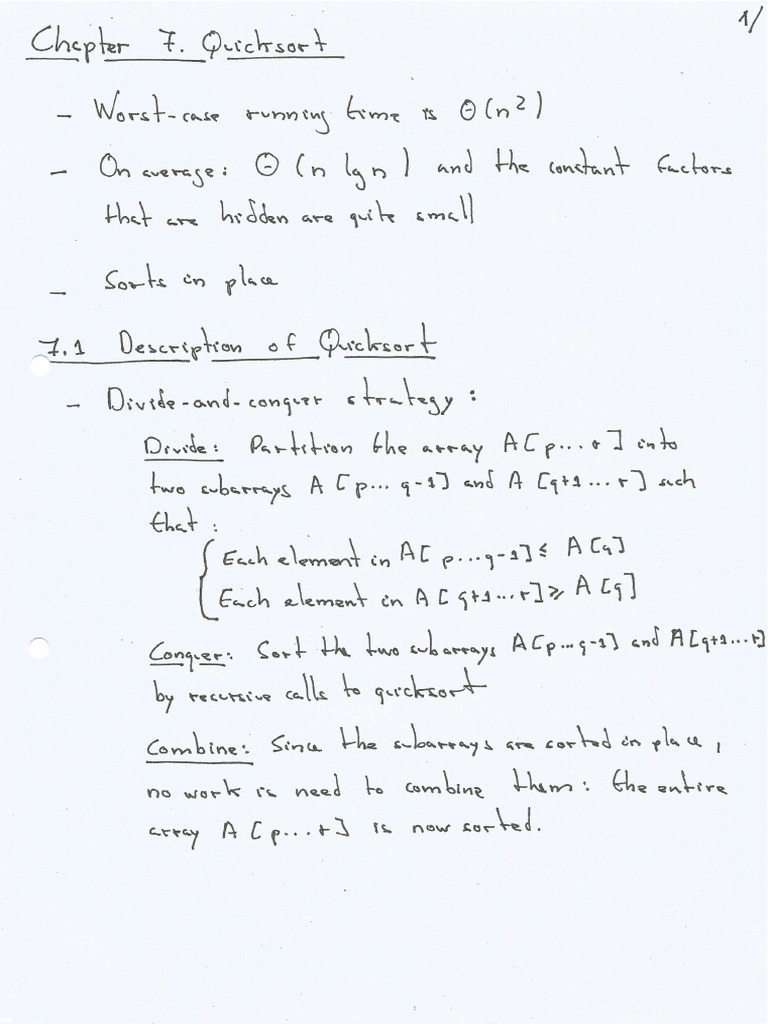 1/
Chapter 7. Quicksort
- Worst-case running time is Θ(n²)
- On average: Θ(n lg n) and the constant factors
that are hidden are quite small
- Sorts in place
7.1 Description of Quicksort
- Divide-and-conquer strategy:
Divide: Partition the array A[p...r] into
two subarrays A[p...q-1] and A[q+1...r] such
that:
{ Each element in A[p...q-1] ≤ A[q]
Each element in A[q+1...r] ≥ A[q]
Conquer: Sort the two subarrays A[p...q-1] and A[q+1...r]
by recursive calls to quicksort
Combine: Since the subarrays are sorted in place,
no work is need to combine them: the entire
array A[p...r] is now sorted.